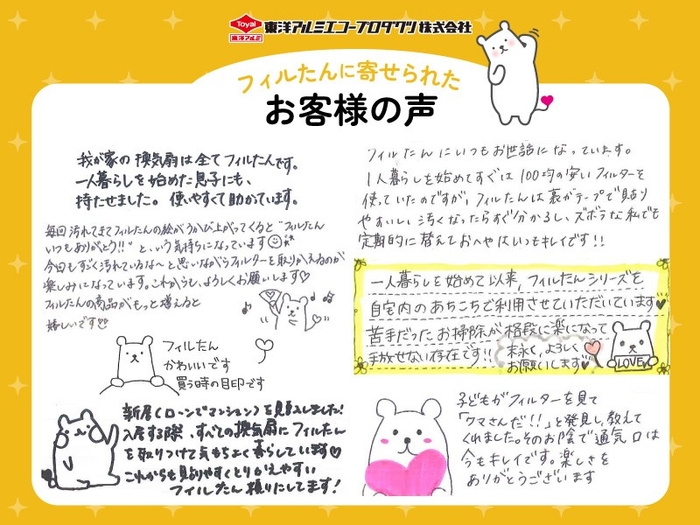 Toyal
東洋アルミ
東洋アルミエコープロダクツ株式会社
フィルたんに寄せられた
お客様の声
我が家の換気扇は全てフィルたんです。
一人暮らしを始めた息子にも、
持たせました。使いやすくて助かています。
毎回汚れてきてフィルたんの絵がうかび上がってくると"フィルたん
いつもありがとう!!"という気持ちになっています
今日もすごく汚れているな〜と思いながらフィルターを取りかえるのが
楽しみになっています。これからも、よろしくお願いします♡
フィルたんの商品がもっと増えると
嬉しいです
フィルたん
かわいいです
買う時の目印です
新居(ローンでマンション)を購入しました!
入居する際、すべての換気扇にフィルたん
を取りつけて気もちよく暮らしています♥
これからも見やすくとりかえやすい
フィルたん頼りにしてます!
フィルたんにいつもお世話になっています。
1人暮らしを始めてすぐは100均の安いフィルターを
使っていたのですが、フィルたんは裏がテープで貼り
やすいし、汚くなったらすぐ分かるし、ズボラな私でも
定期的に替えておへやはいつもキレイです!!
一人暮らしを始めて以来、フィルたんシリーズを
自宅内のあちこちで利用させていただいています♥
苦手だったお掃除が格段に楽になって
手放せない存在です!!
末永く、よろしく
お願いします♡
LOVE
子どもがフィルターを見て
「クマさんだ!!」と発見し、教えて
くれました。そのお陰で通気口は
今もキレイです。楽しさを
ありがとうございます